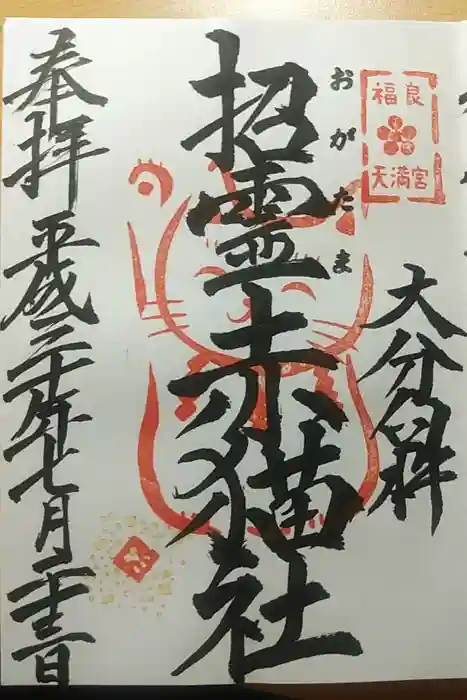 福良
天満宮
大分臼杵
おがたま
招霊赤猫社
奉拝
平成三十年七月二十三日